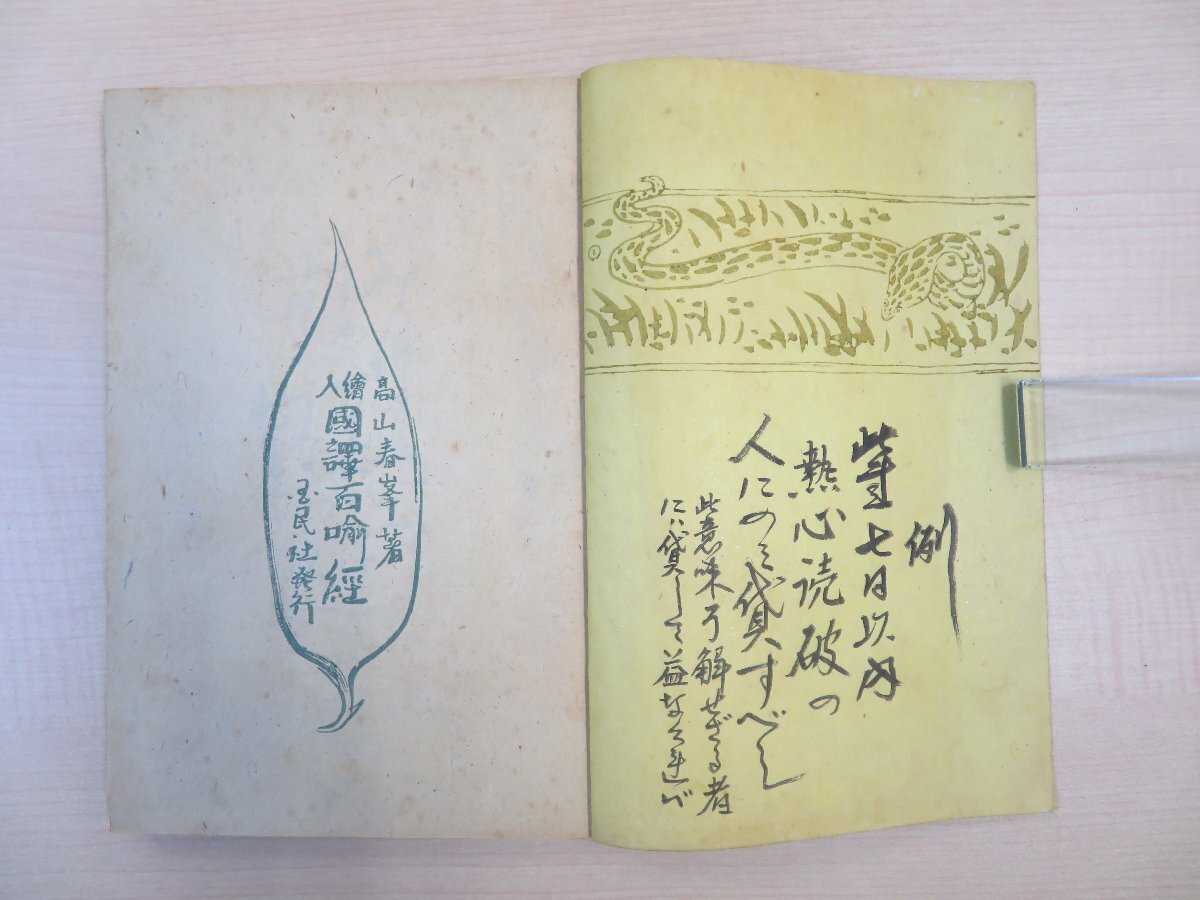 例
此書七日以内
熱心読破の
人にのミ貸すべし
此意味了解せざる者
には貸して益なければ
高山春峯著
繪入
國譯百喩經
民社發行